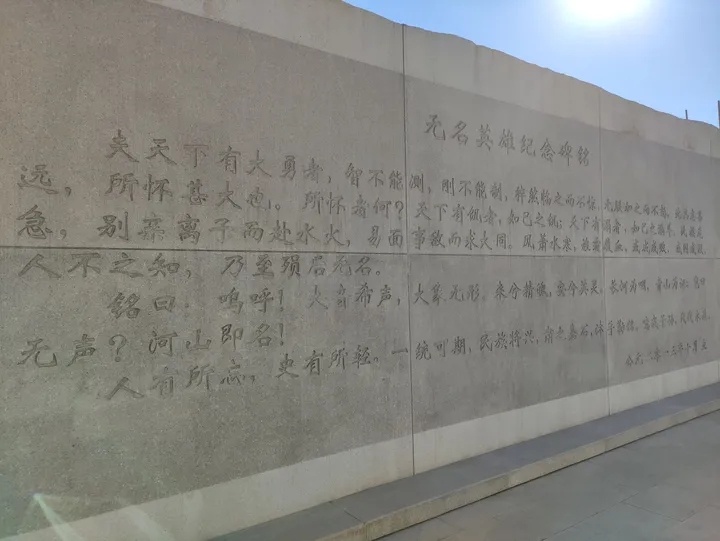 无名英雄纪念碑铭
夫天下有大勇者，智不能测，刚不能制，猝然临之而不惊，无故加之而不怒，此其志甚
远，所怀甚大也。所怀者何？天下有饥者，如己之饥；天下有溺者，如己之溺耳。民族危
急，别亲离子而赴水火，易面事敌而求大同。风萧水寒，旌霜履血，或成或败，或囚或殁，
人不之知，乃至殒后无名。
铭曰：呜呼！大音希声，大象无形。来兮精魄，安兮英灵。长河为咽，青山为证；岂曰
无声？河山即名！
人有所忘，史有所轻。一统可期，民族将兴，肃之嘉石，沐手勒铭。噫我子孙，代代永旌。
公元二〇一三年十月立